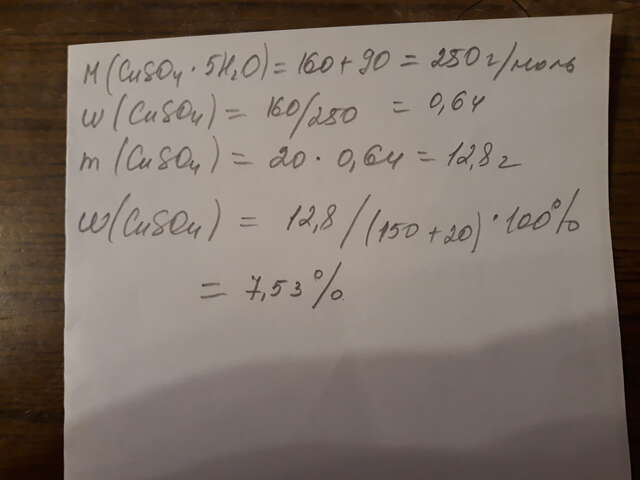 M(CuSO₄·5H₂O)=160+90=250г/моль
w(CuSO₄)=160/250=0,64
m(CuSO₄)=20·0,64=12,8г
w(CuSO₄)=12,8/(150+20)·100%
=7,53%